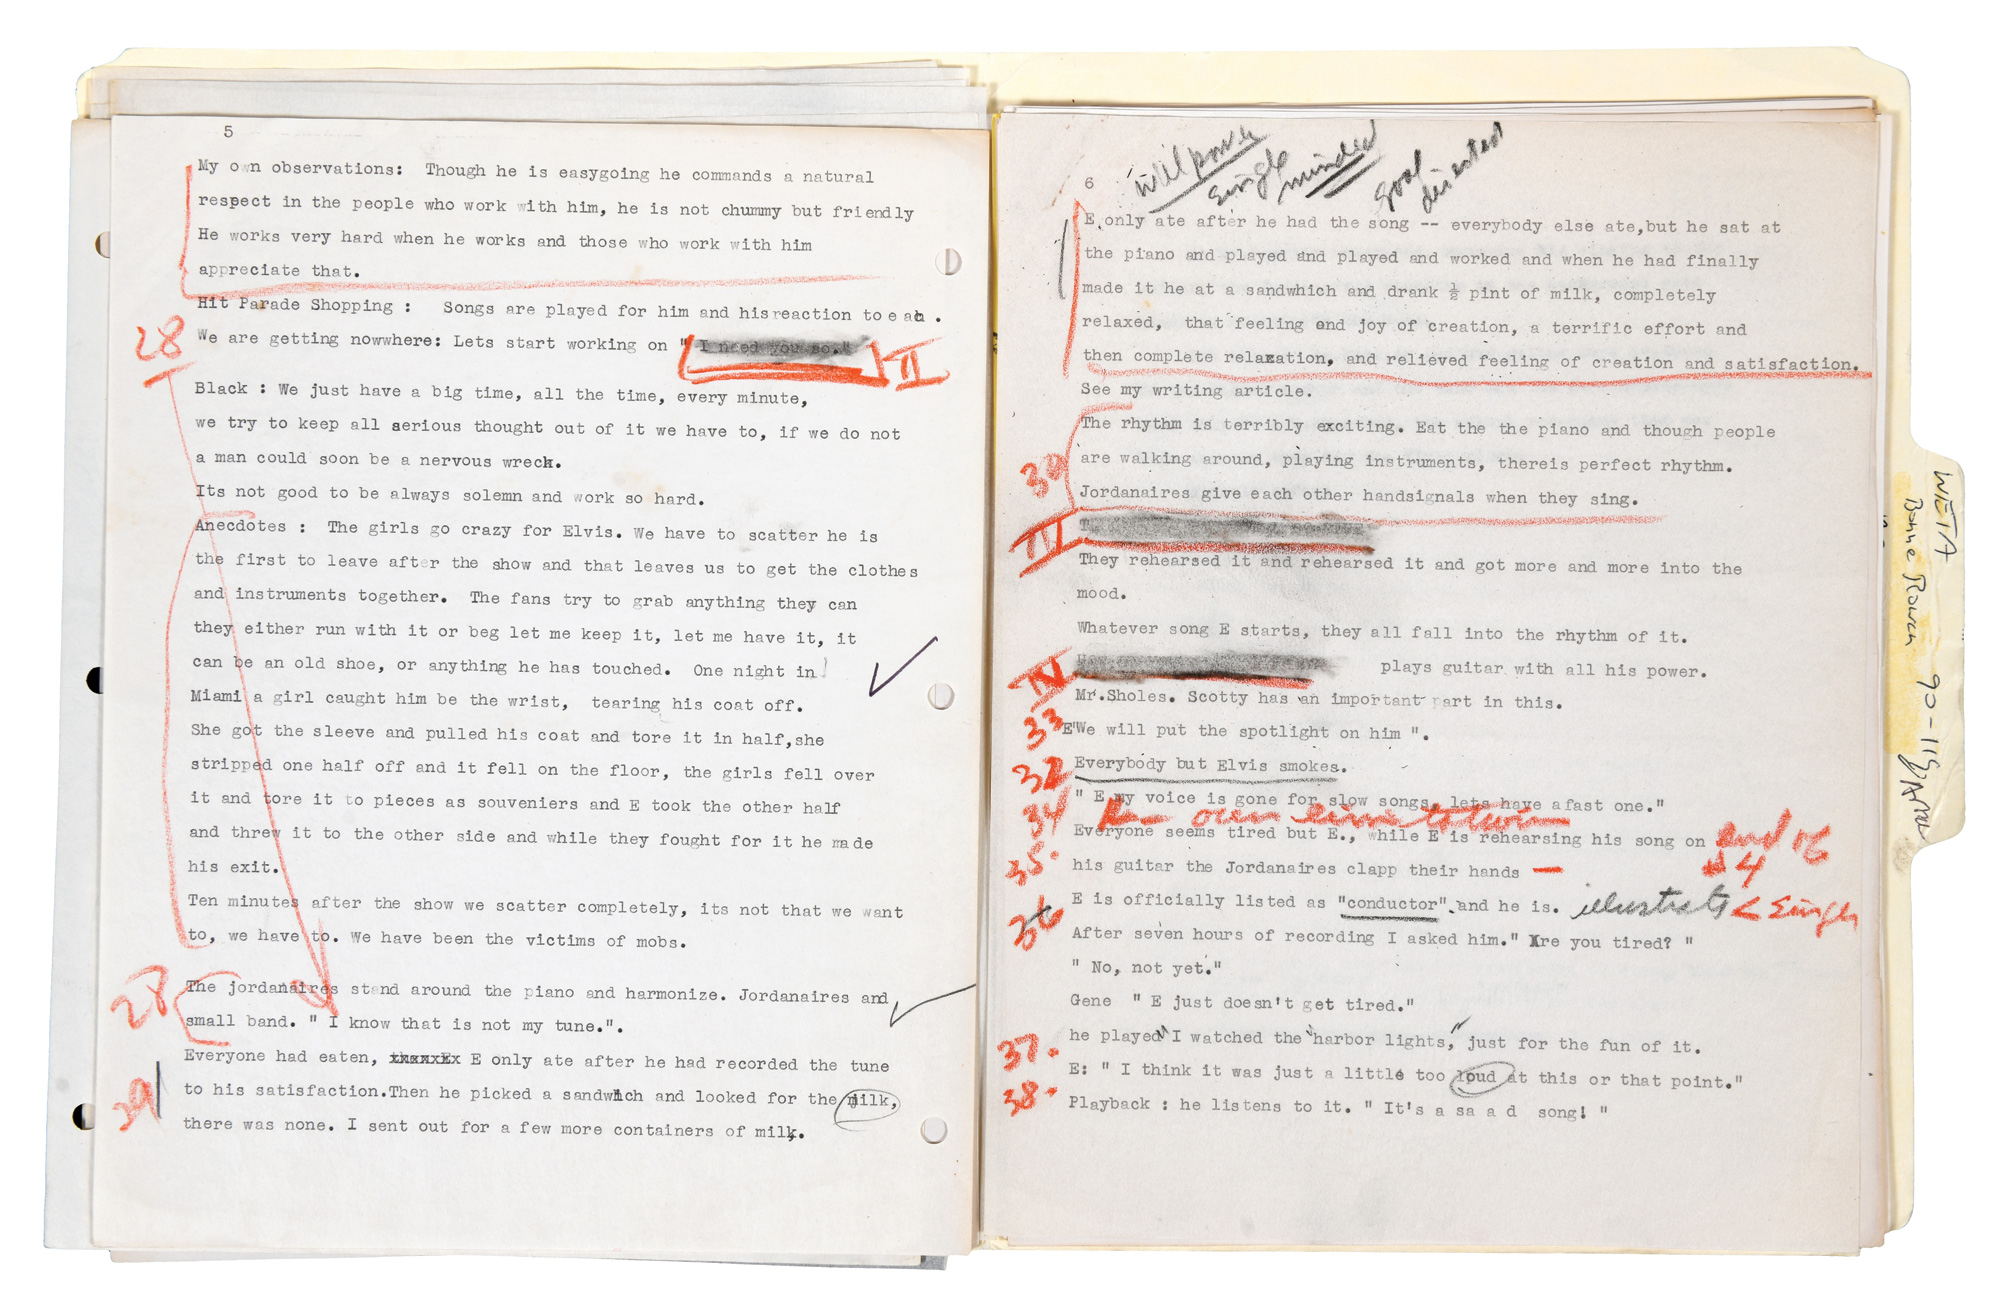 5
My own observations: Though he is easygoing he commands a natural
respect in the people who work with him, he is not chummy but friendly
He works very hard when he works and those who work with him
appreciate that.
Hit Parade Shopping : Songs are played for him and his reaction to each .
28
We are getting nowwhere: Lets start working on " I need you so." II
Black : We just have a big time, all the time, every minute,
we try to keep all serious thought out of it we have to, if we do not
a man could soon be a nervous wreck.
Its not good to be always solemn and work so hard.
Anecdotes : The girls go crazy for Elvis. We have to scatter he is
the first to leave after the show and that leaves us to get the clothes
and instruments together. The fans try to grab anything they can
they either run with it or beg let me keep it, let me have it, it
can be an old shoe, or anything he has touched. One night in
Miami a girl caught him be the wrist, tearing his coat off.
She got the sleeve and pulled his coat and tore it in half,she
stripped one half off and it fell on the floor, the girls fell over
it and tore it to pieces as souveniers and E took the other half
and threw it to the other side and while they fought for it he made
his exit.
Ten minutes after the show we scatter completely, its not that we want
to, we have to. We have been the victims of mobs.
28
The jordanaires stand around the piano and harmonize. Jordanaires and
small band. " I know that is not my tune.".
Everyone had eaten, E only ate after he had recorded the tune
29
to his satisfaction.Then he picked a sandwhich and looked for the milk,
there was none. I sent out for a few more containers of milk.
will power
single minded
goal directed
6
E,only ate after he had the song -- everybody else ate,but he sat at
the piano and played and played and worked and when he had finally
made it he at a sandwhich and drank ½ pint of milk, completely
relaxed, that feeling and joy of creation, a terrific effort and
then complete relaxation, and relieved feeling of creation and satisfaction.
See my writing article.
The rhythm is terribly exciting. Eat the the piano and though people
30
are walking around, playing instruments, thereis perfect rhythm.
Jordanaires give each other handsignals when they sing.
III
They rehearsed it and rehearsed it and got more and more into the
mood.
Whatever song E starts, they all fall into the rhythm of it.
IV plays guitar with all his power.
Mr.Sholes. Scotty has an important part in this.
33 E"We will put the spotlight on him ".
32 Everybody but Elvis smokes.
34 " E my voice is gone for slow songs, lets have afast one."
Everyone seems tired but E., while E is rehearsing his song on
35. his guitar the Jordanaires clapp their hands —
36 E is officially listed as "conductor". and he is. illustrate
After seven hours of recording I asked him." Are you tired? "
" No, not yet."
Gene " E just doesn't get tired."
37. he played "I watched the harbor lights," just for the fun of it.
E: " I think it was just a little too loud at this or that point."
38. Playback : he listens to it. " It's a sa a d song! "
WETA
90-119